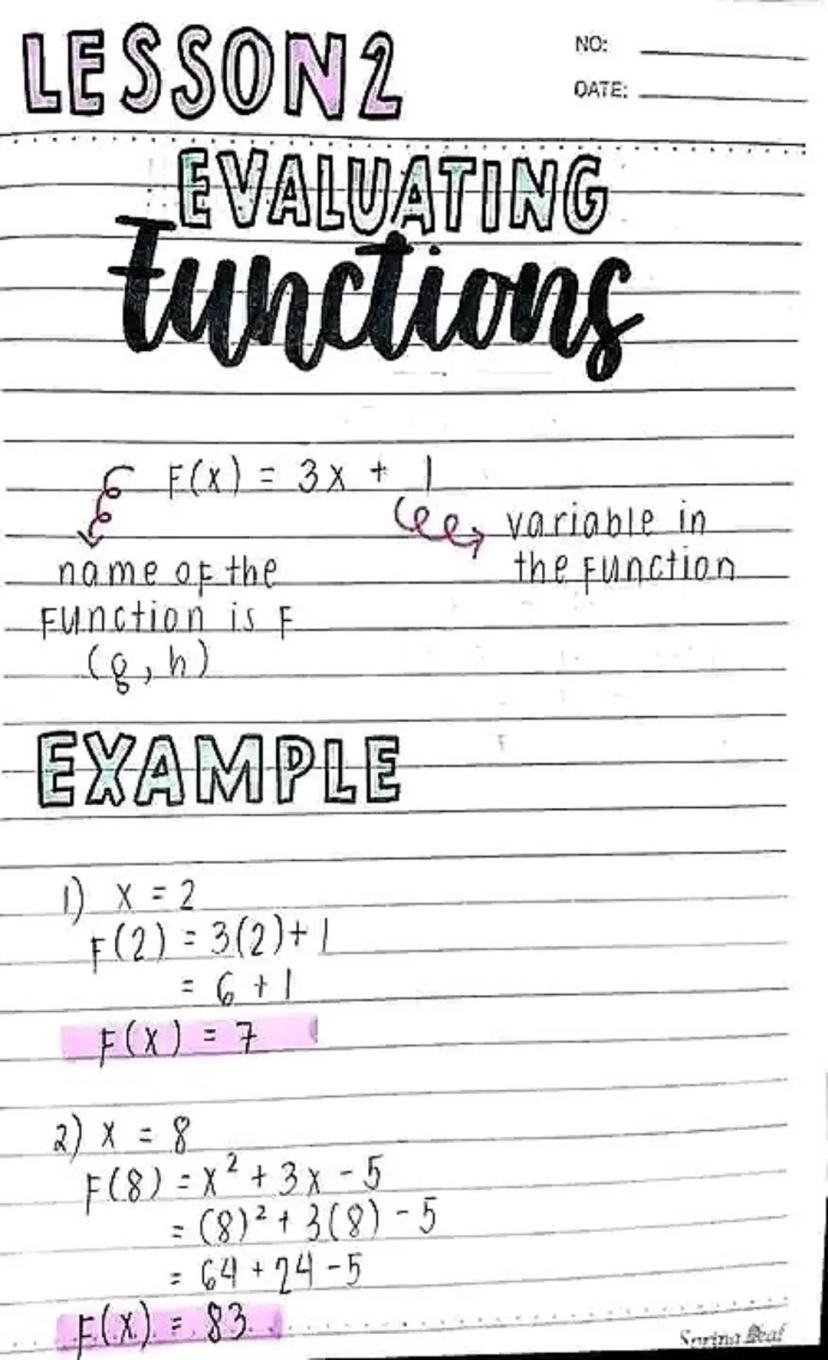 LESSON 2
NO:
DATE:
EVALUATING
Functions
F(x) = 3x + 1
variable in
the function
name of the
function is F
(g, h)
EXAMPLE
1) x = 2
F(2) = 3(2) + 1
= 6 + 1
F(x) = 7
2) x = 8
F(8) = x² + 3x - 5
= (8)² + 3(8) - 5
= 64 + 24 - 5
F(x) = 83
Spring Leaf